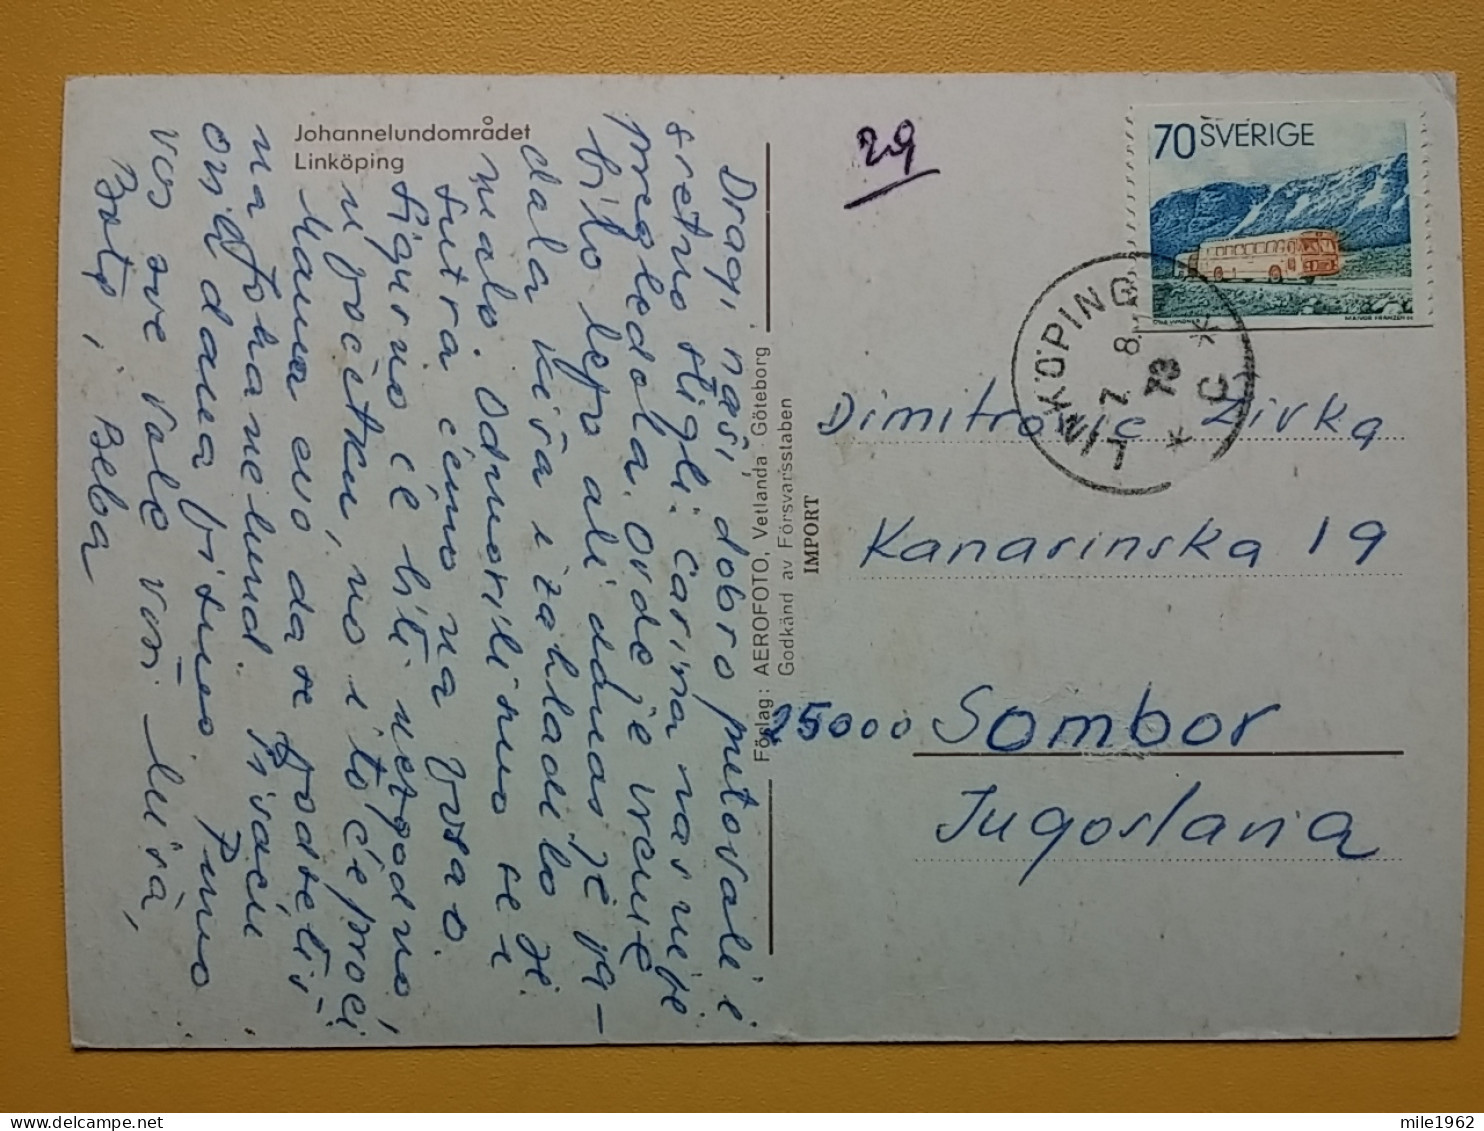 Johannelundområdet
Linköping
Dragi naši, dobro putovali i
sretno stigli. Carina nas nije
pregledala. Ovde je vreme
bilo lepo ali danas je pa-
dala kiša i zahladilo je
malo. Odmorili smo se i
sutra ćemo na posao.
Sigurno će biti nezgodno
u početku, no i to će proći
Mama evo da se podsetiš
na Johannelund. Pisaću
ovih dana pismo. Puno
vas sve vole vaši
Bata i Beba
Förlag: AEROFOTO, Vetlanda - Göteborg
Godkänd av Försvarsstaben
IMPORT
29
70 SVERIGE
LINKÖPING
8.
7
73
C
Dimitrović Živka
Kanarinska 19
25000 Sombor
Jugoslavia
mile1962